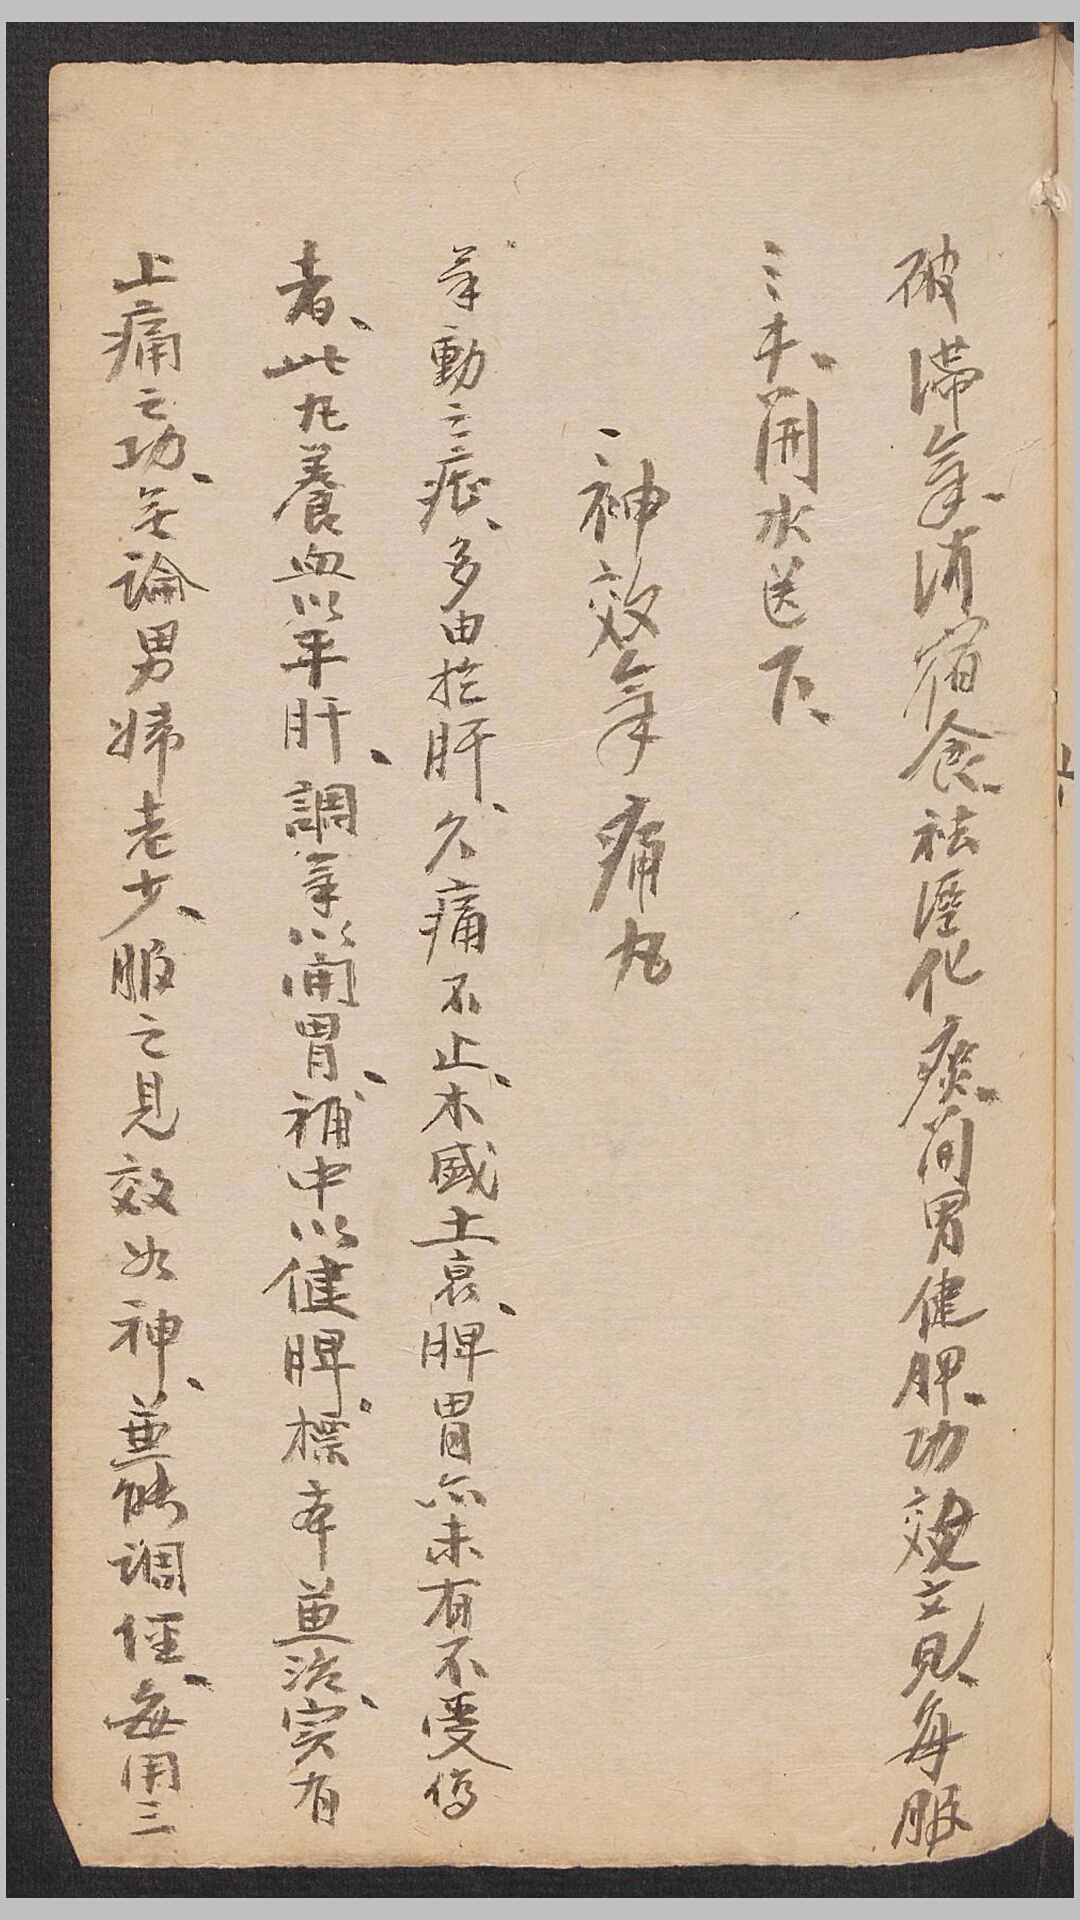 破滯氣、消宿食、祛溼化痰、開胃健脾、功效立見、每服
三本、開水送下、
神效氣痛丸
夫動之症、多由於肝、久痛不止、木盛土衰、脾胃亦未有不受傷
者、此丸養血以平肝、調氣以開胃、補中以健脾。標本並治、实有
止痛之功、無論男婦老少、服之見效如神、並能調經、每用三